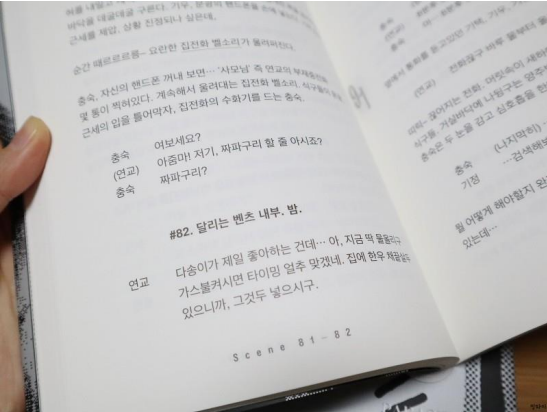 바닥을 데굴데굴 구른다. 기우, 문광의 핸드폰을
근세를 제압, 상황 진정되나 싶은데,
순간 때르르르릉- 요란한 집전화 벨소리가 울려퍼진다.
충숙, 자신의 핸드폰 꺼내 보면… '사모님' 즉 연교의 부재중
몇 통이 찍혀있다. 계속해서 울려대는 집전화 벨소리. 식구들
근세의 입을 틀어막자, 집전화의 수화기를 드는 충숙.
충숙 여보세요?
(연교) 아줌마! 저기, 짜파구리 할 줄 아시죠?
충숙 짜파구리?
#82. 달리는 벤츠 내부. 밤.
연교 다송이가 제일 좋아하는 건데… 아, 지금 딱 물올리구
가스불켜시면 타이밍 얼추 맞겠네. 집에 한우 채끝살도
있으니까, 그것두 넣으시구.
Scene 81-82
충숙
(연교)
(연교) 전화끊구 바루 물부터
띠릭- 끊어지는 전화. 머릿속이 새하
식구들, 거실바닥에 나뒹구는
충숙은 두 눈을 감고 심호흡을 한
충숙 (나지막히)
기정 …검색해보
뭘 어떻게 해야할지
있는데…